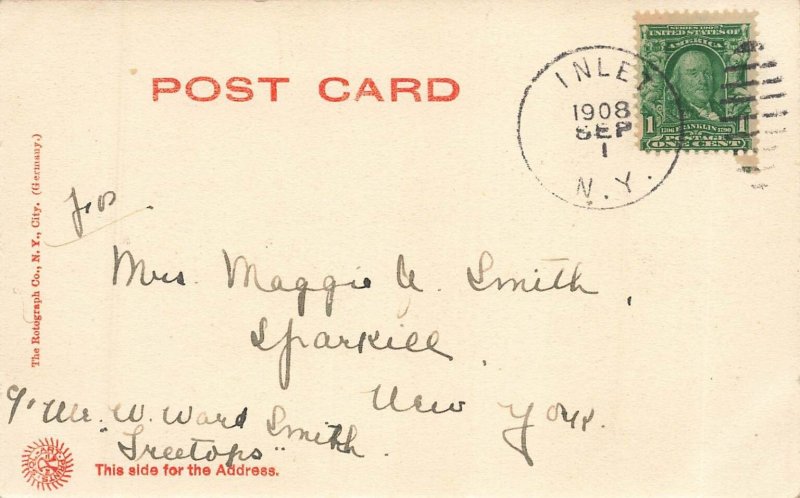 POST CARD
INLET
1908
SEP
1
N.Y.
SERIES 1902
UNITED STATES OF
AMERICA
1706 FRANKLIN 1790
1 POSTAGE 1
ONE CENT
The Rotograph Co., N. Y., City. (Germany.)
Mrs. Maggie A. Smith,
Sparkill,
New York.
c/o Mr. W. Ward Smith.
"Treetops"
This side for the Address.